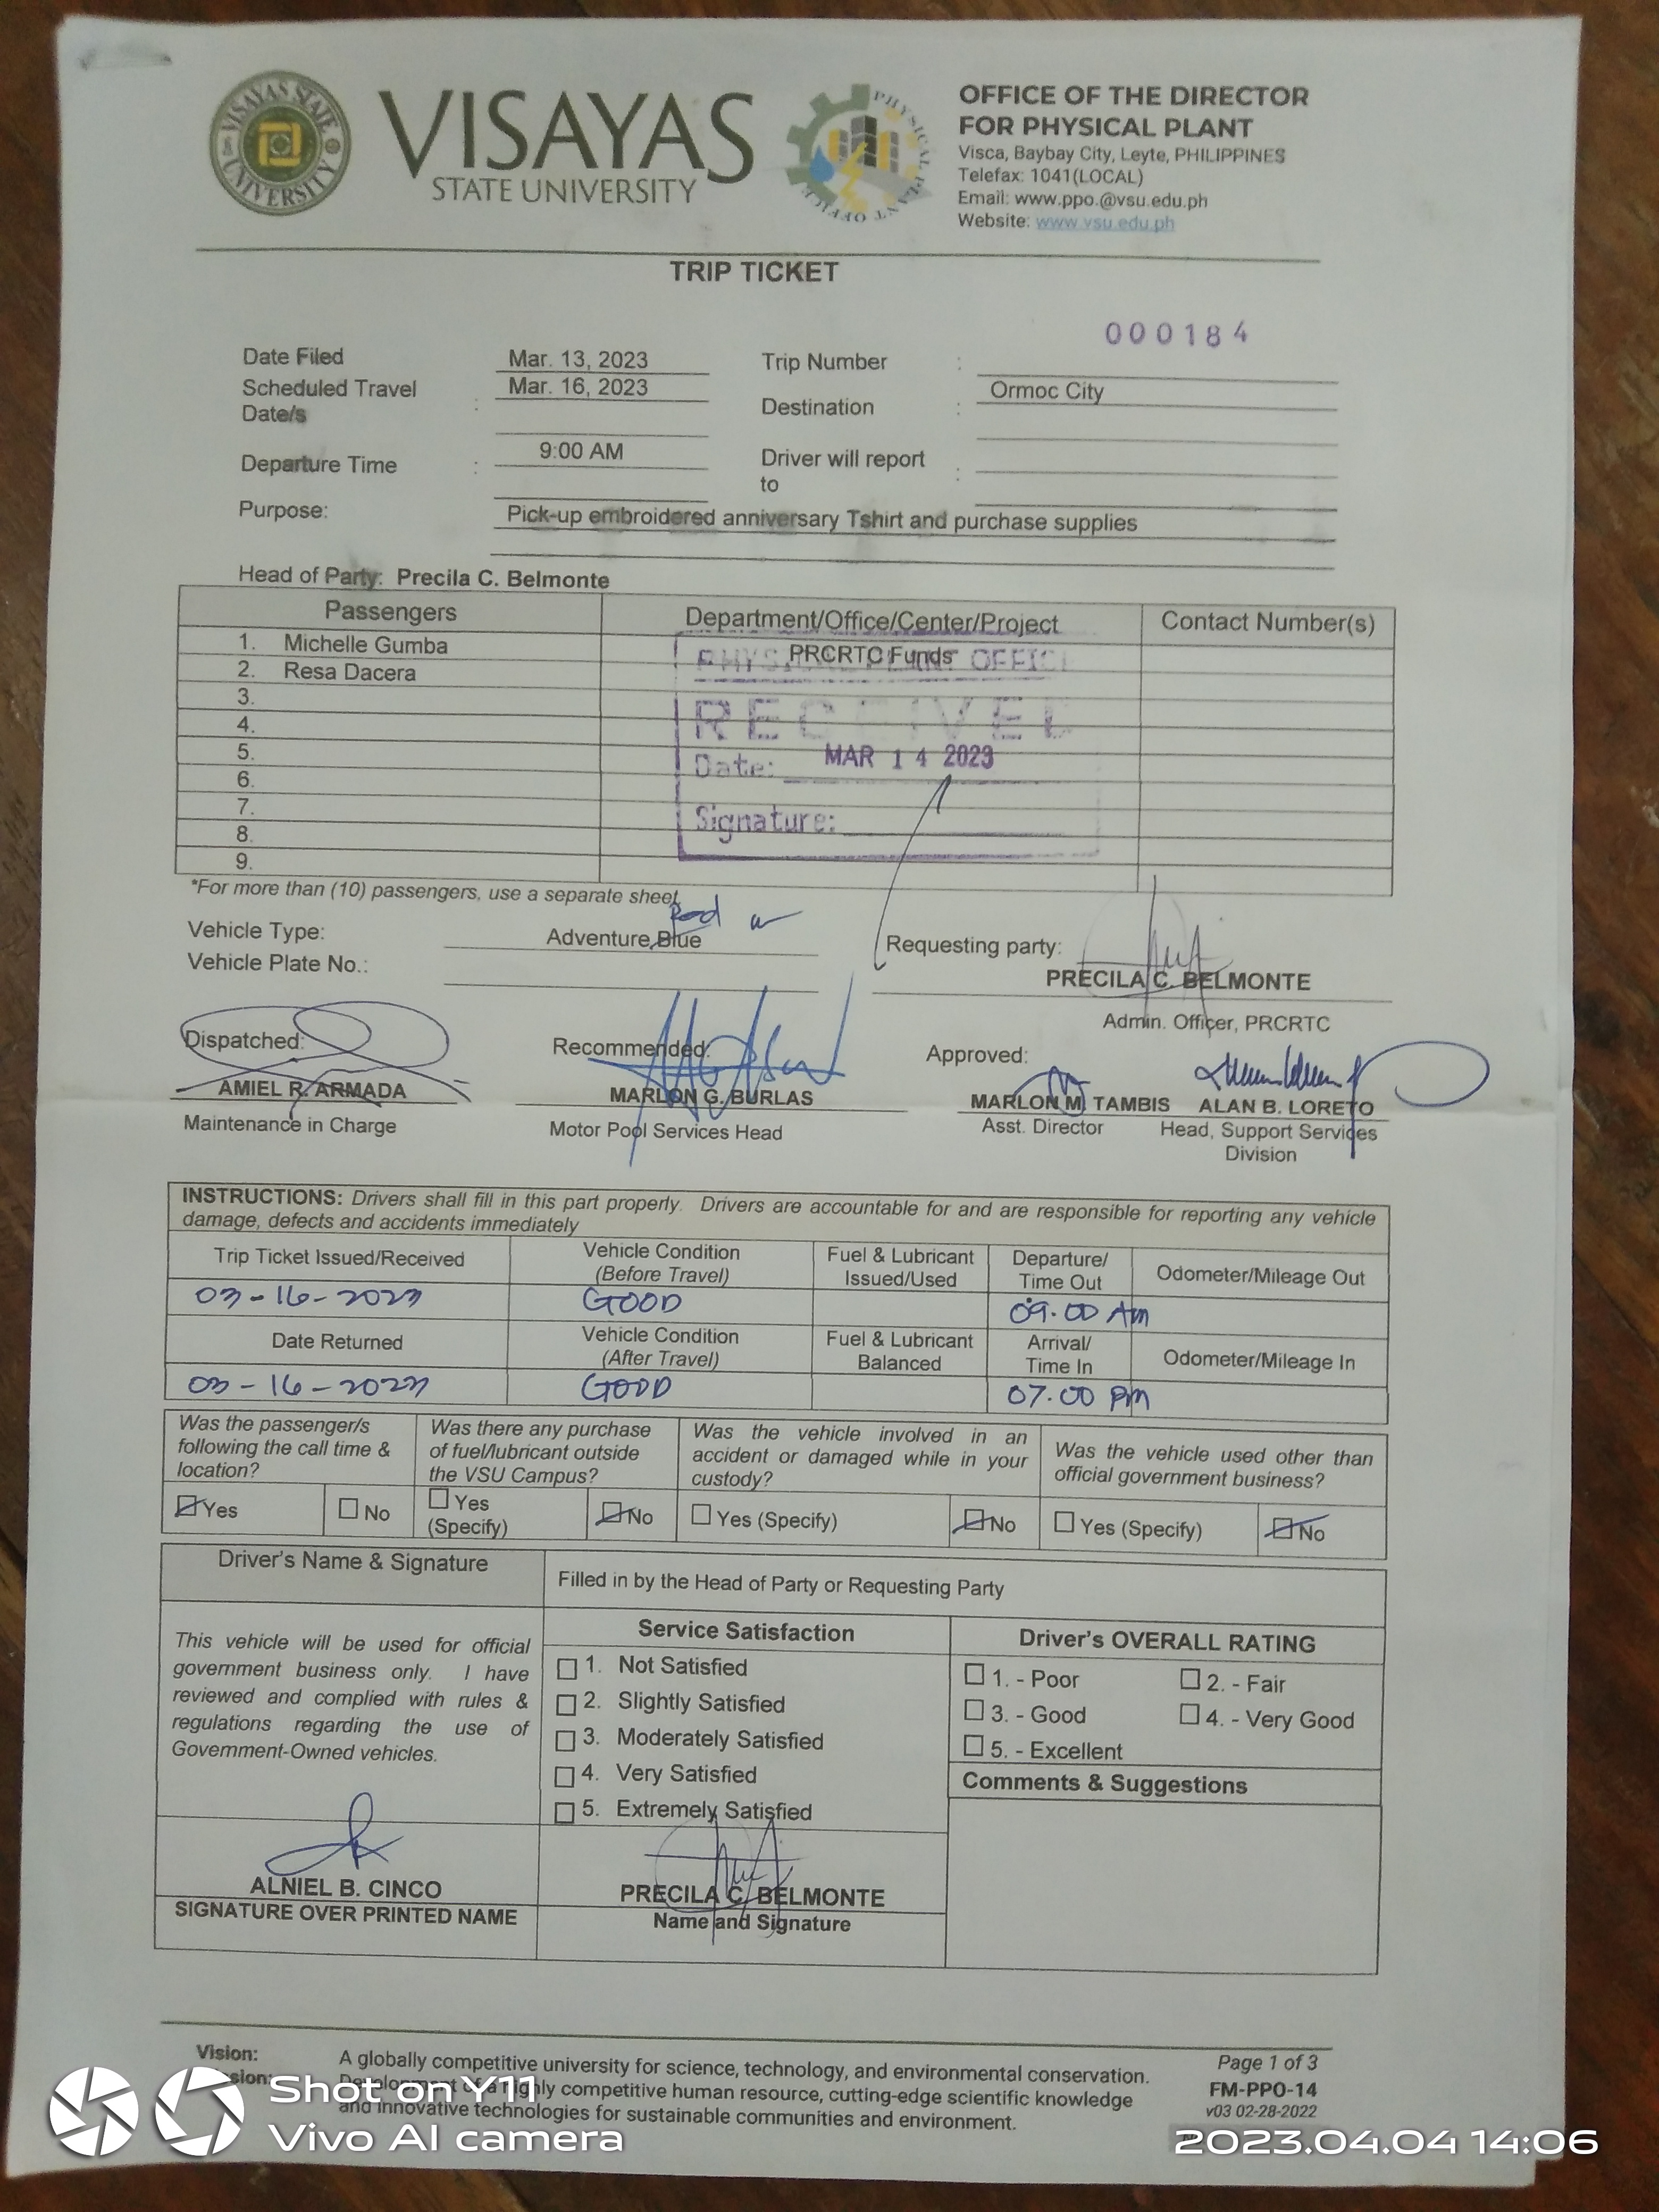 VISAYAS STATE UNIVERSITY
VISAYAS
STATE UNIVERSITY
PHYSICAL PLANT OFFICE
OFFICE OF THE DIRECTOR
FOR PHYSICAL PLANT
Visca, Baybay City, Leyte, PHILIPPINES
Telefax: 1041(LOCAL)
Email: www.ppo.@vsu.edu.ph
Website: www.vsu.edu.ph
TRIP TICKET
000184
Date Filed Mar. 13, 2023 Trip Number :
Scheduled Travel Date/s : Mar. 16, 2023 Destination : Ormoc City
Departure Time : 9:00 AM Driver will report to :
Purpose: Pick-up embroidered anniversary Tshirt and purchase supplies
Head of Party: Precila C. Belmonte
Passengers Department/Office/Center/Project Contact Number(s)
1. Michelle Gumba PRCRTC Funds
2. Resa Dacera
3.
4.
5.
6.
7.
8.
9.
PHYSICAL PLANT OFFICE
RECEIVED
Date: MAR 14 2023
Signature:
*For more than (10) passengers, use a separate sheet
Red
Vehicle Type: Adventure, Blue
Vehicle Plate No.:
Requesting party:
PRECILA C. BELMONTE
Admin. Officer, PRCRTC
Dispatched: Recommended: Approved:
AMIEL R. ARMADA MARLON G. BURLAS MARLON M. TAMBIS ALAN B. LORETO
Maintenance in Charge Motor Pool Services Head Asst. Director Head, Support Services
Division
INSTRUCTIONS: Drivers shall fill in this part properly. Drivers are accountable for and are responsible for reporting any vehicle
damage, defects and accidents immediately
Trip Ticket Issued/Received Vehicle Condition (Before Travel) Fuel & Lubricant Issued/Used Departure/ Time Out Odometer/Mileage Out
03-16-2023 GOOD 09.00 Am
Date Returned Vehicle Condition (After Travel) Fuel & Lubricant Balanced Arrival/ Time In Odometer/Mileage In
03-16-2023 GOOD 07.00 Pm
Was the passenger/s
following the call time &
location?
Was there any purchase
of fuel/lubricant outside
the VSU Campus?
Was the vehicle involved in an
accident or damaged while in your
custody?
Was the vehicle used other than
official government business?
Yes No Yes (Specify) No Yes (Specify) No Yes (Specify) No
Driver's Name & Signature
Filled in by the Head of Party or Requesting Party
This vehicle will be used for official
government business only. I have
reviewed and complied with rules &
regulations regarding the use of
Government-Owned vehicles.
Service Satisfaction
1. Not Satisfied
2. Slightly Satisfied
3. Moderately Satisfied
4. Very Satisfied
5. Extremely Satisfied
Driver's OVERALL RATING
1. - Poor 2. - Fair
3. - Good 4. - Very Good
5. - Excellent
Comments & Suggestions
ALNIEL B. CINCO
SIGNATURE OVER PRINTED NAME
PRECILA C. BELMONTE
Name and Signature
Vision: A globally competitive university for science, technology, and environmental conservation.
Development of a highly competitive human resource, cutting-edge scientific knowledge
and innovative technologies for sustainable communities and environment.
Page 1 of 3
FM-PPO-14
v03 02-28-2022
Shot on Y11
Vivo AI camera
2023.04.04 14:06